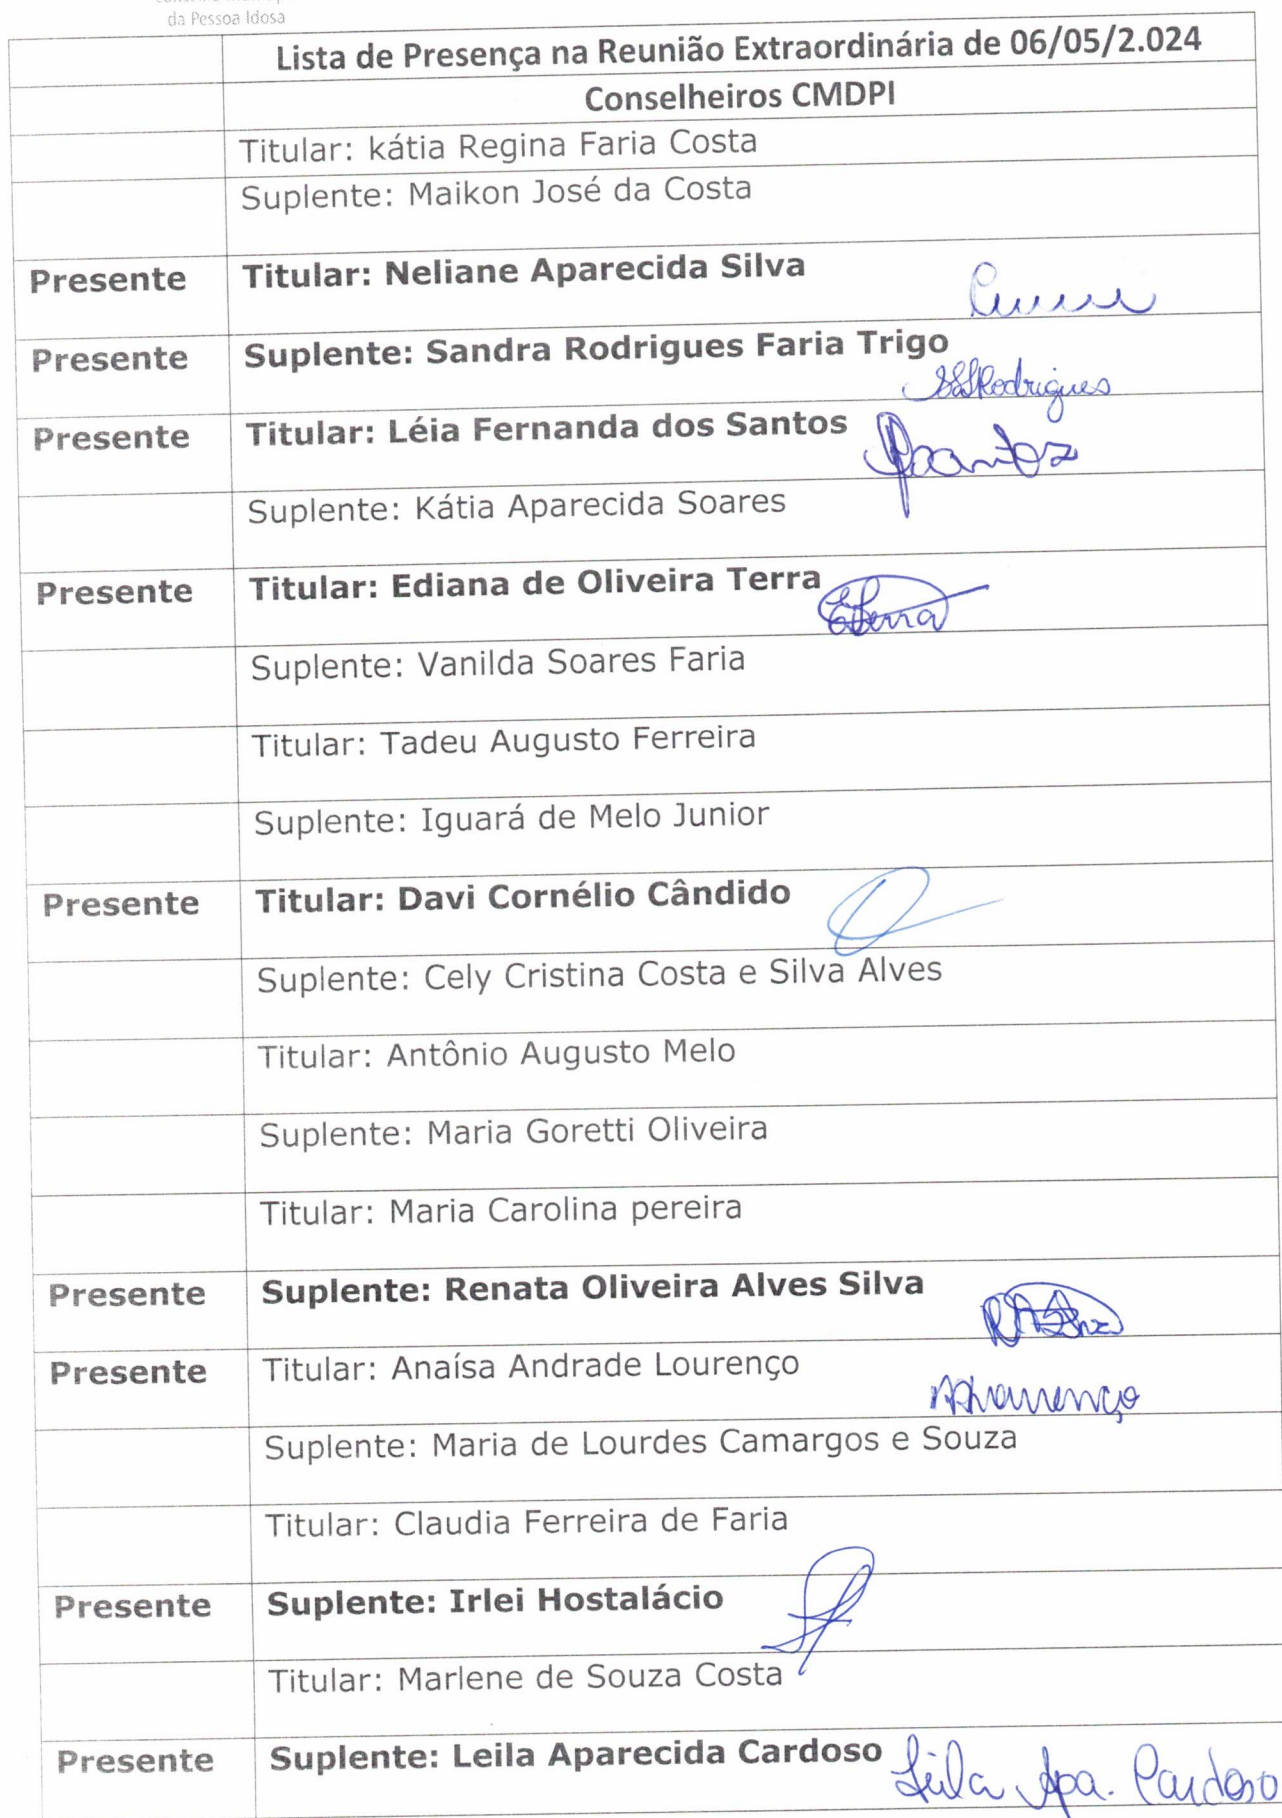 da Pessoa Idosa
Lista de Presença na Reunião Extraordinária de 06/05/2.024
Conselheiros CMDPI
Titular: kátia Regina Faria Costa
Suplente: Maikon José da Costa
Presente Titular: Neliane Aparecida Silva
Presente Suplente: Sandra Rodrigues Faria Trigo
Rodrigues
Presente Titular: Léia Fernanda dos Santos
Suplente: Kátia Aparecida Soares
Presente Titular: Ediana de Oliveira Terra
Suplente: Vanilda Soares Faria
Titular: Tadeu Augusto Ferreira
Suplente: Iguará de Melo Junior
Presente Titular: Davi Cornélio Cândido
Suplente: Cely Cristina Costa e Silva Alves
Titular: Antônio Augusto Melo
Suplente: Maria Goretti Oliveira
Titular: Maria Carolina pereira
Presente Suplente: Renata Oliveira Alves Silva
Presente Titular: Anaísa Andrade Lourenço
Suplente: Maria de Lourdes Camargos e Souza
Titular: Claudia Ferreira de Faria
Presente Suplente: Irlei Hostalácio
Titular: Marlene de Souza Costa
Presente Suplente: Leila Aparecida Cardoso Leila Apa. Cardoso